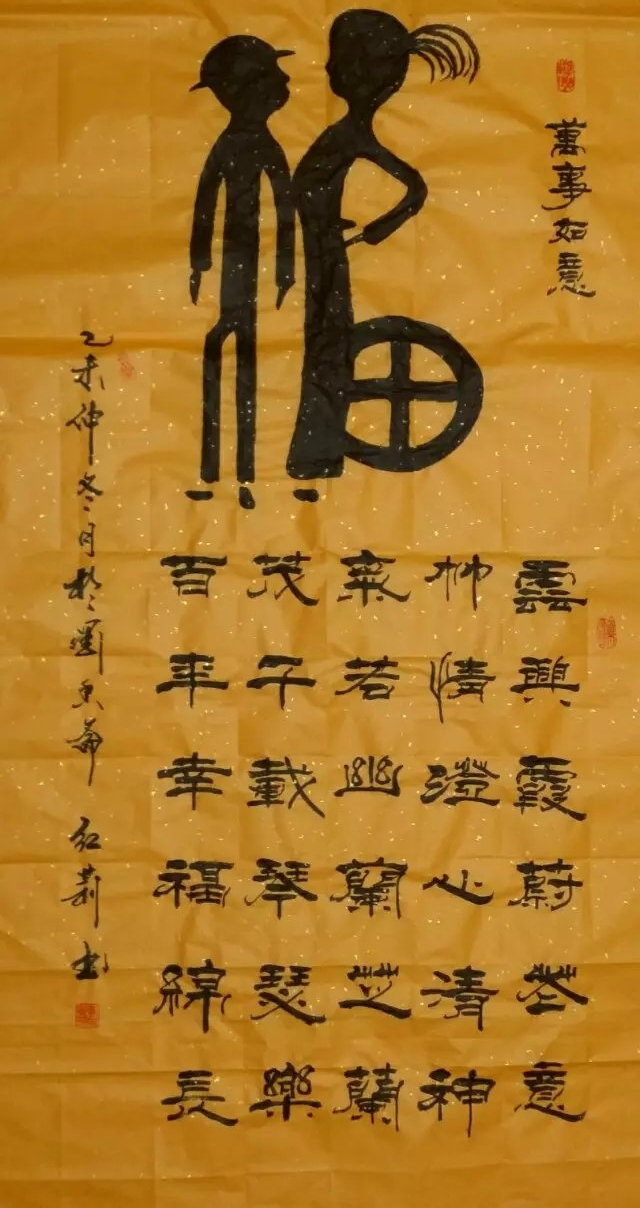 萬事如意
福
雲興霞蔚花意
柳情澄心清神
氣若幽蘭芝蘭
茂千載琴瑟樂
百年幸福綿長
乙未仲冬月於
紅莉書